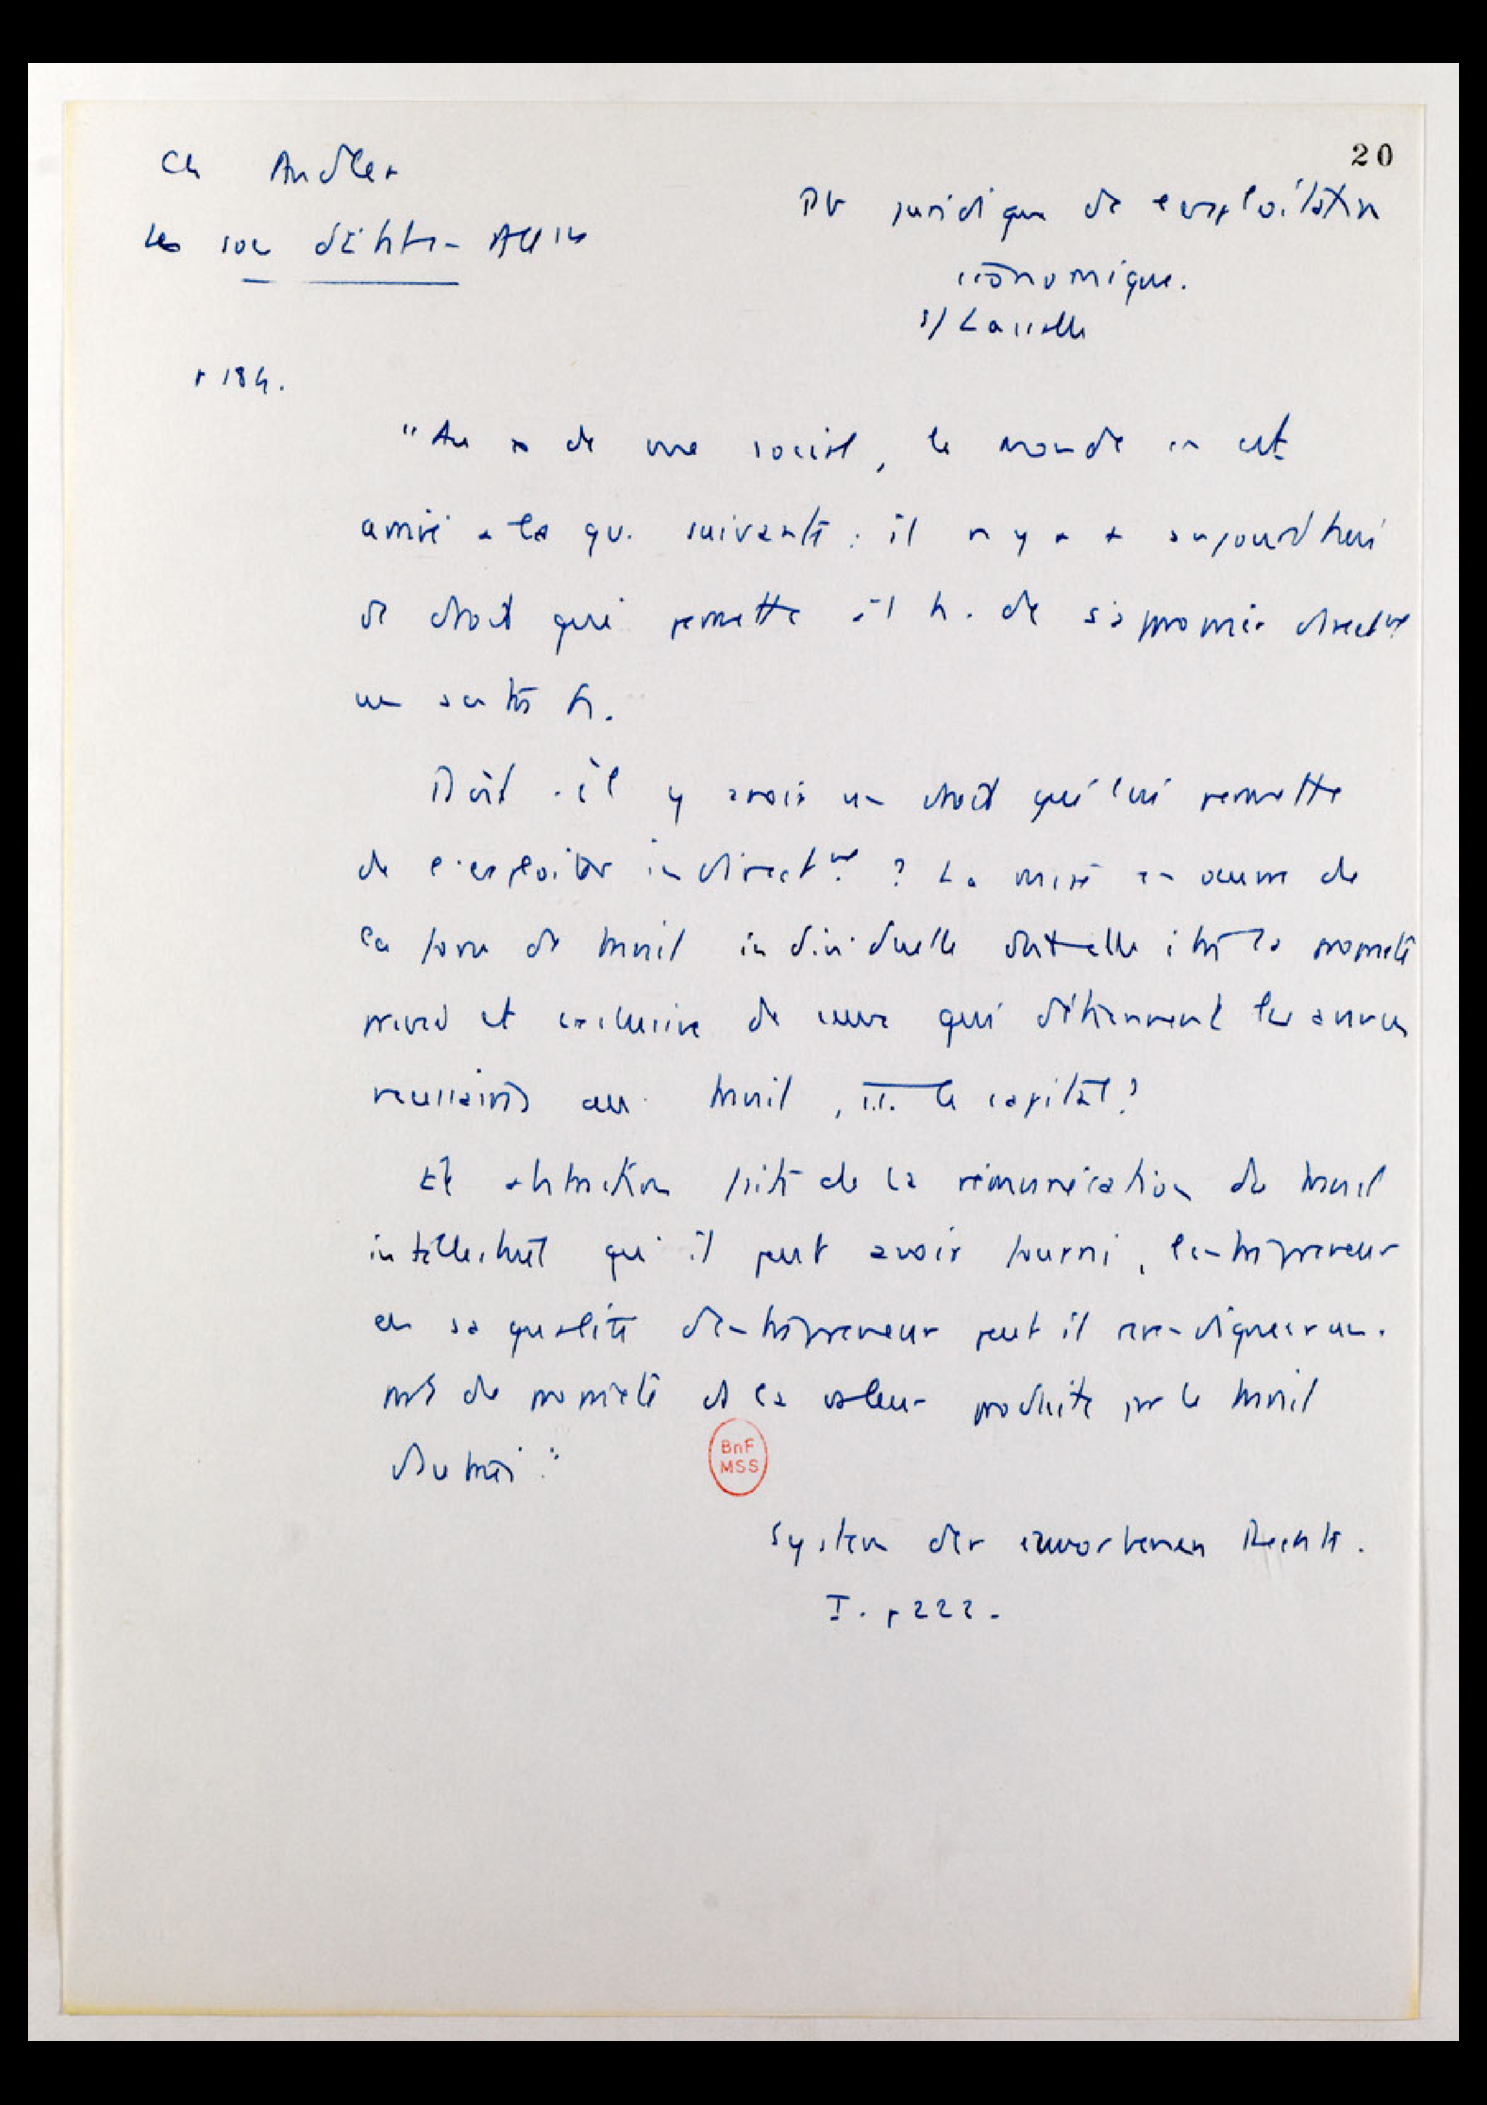 20
Ch Andler
Les soc d'Etat en Allem
Pb juridique de l'exploitation
économique.
s/ Lassalle
p 184.
"Au pt de vue social, le monde en est
arrivé à la qu. suivante : il n'y a + aujourd'hui
de droit qui permette à l'h. de s'approprier directmt
un autre h.
Doit-il y avoir un droit qui lui permette
de l'exploiter indirectmt ? La mise en œuvre de
la force de travail individuelle doit-elle être la propriété
privée et exclusive de ceux qui détiennent les avances
nécessaires au travail, i.e. le capital ?
Et abstraction faite de la rémunération du travail
intellectuel qu'il peut avoir fourni, l'entrepreneur
en sa qualité d'entrepreneur peut il revendiquer un
droit de propriété ds la valeur produite par le travail
d'autrui"
BnF
MSS
System der erworbenen Rechte.
I. p 222.